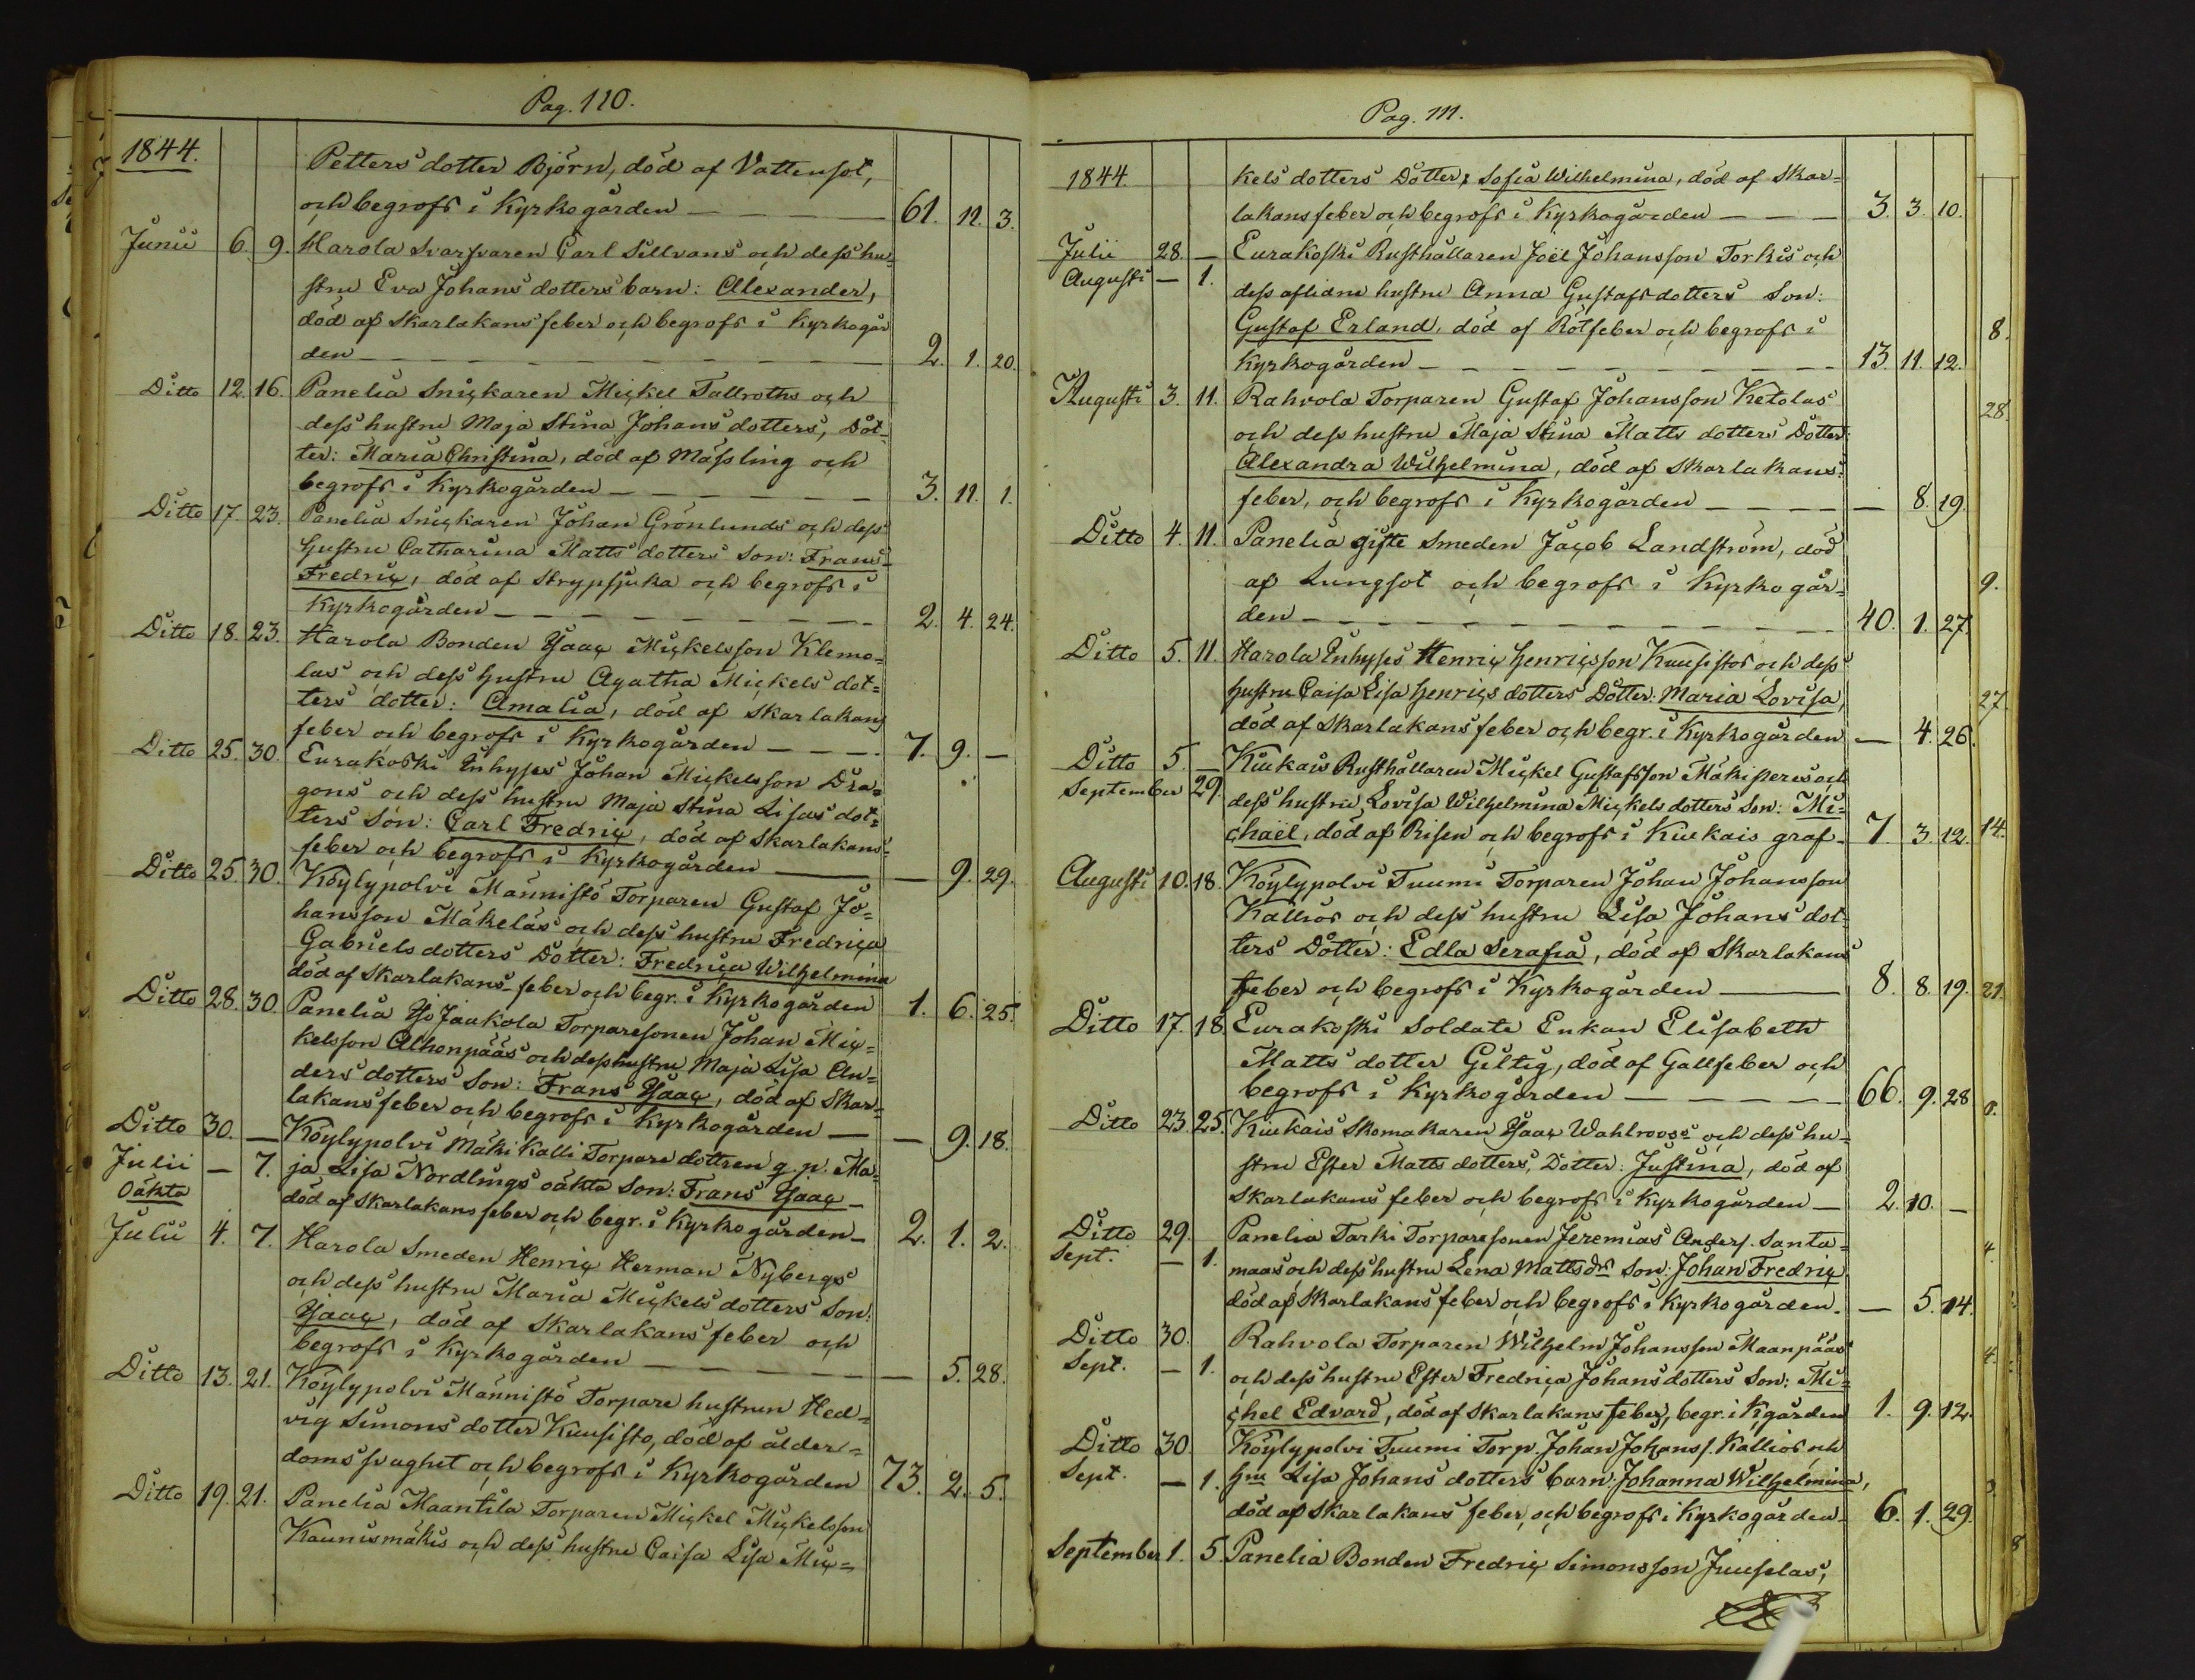 Pag. 110.
1844. Petters dotter Björn, död af Vattensot,
och begrofs i Kyrkogården — 61. 11. 3.
Junii 6. 9. Harola Svarfvaren Carl Sillvans och dess hu-
stru Eva Johans dotters barn: Alexander,
död af Skarlakans feber och begrofs i Kyrkogår
den — 2. 1. 20.
Ditto 12. 16. Panelia Snickaren Mickel Tallroths och
dess hustru Maja Stina Johans dotters, Dot-
ter: Maria Christina, död af Mässling och
begrofs i Kyrkogården — 3. 11. 1.
Ditto 17. 23. Panelia Snickaren Johan Grönlunds och dess
hustru Catharina Matts dotters Son: Frans
Fredric, död af Strypsjuka och begrofs i
Kyrkogården — 2. 4. 24.
Ditto 18. 23. Harola Bonden Isaac Mickelsson Klemo-
las och dess hustru Agatha Mickels dot-
ters dotter: Amalia, död af Skarlakans
feber och begrofs i Kyrkogården — 7. 9. —
Ditto 25. 30. Eurakoski Inhyses Johan Mickelsson Dra-
gons och dess hustru Maja Stina Lisas dot-
ters Son: Carl Fredric, död af Skarlakans-
feber och begrofs i Kyrkogården — — 9. 29.
Ditto 25. 30. Köylypolvi Männistö Torparen Gustaf Jo-
hansson Mäkeläs och dess hustru Fredrica
Gabriels dotters Dotter: Fredrica Wilhelmina
död af Skarlakans-feber och begr. i Kyrkogården 1. 6. 25.
Ditto 28. 30. Panelia Iso Jaakola Torparesonen Johan Mic-
kelsson Alhonpääs och dess hustru Maja Lisa An-
ders dotters Son: Frans Isaac, död af Skar-
lakans feber och begrofs i Kyrkogården — — 9. 18.
Ditto 30. — Köylypolvi Mäki Kalli Torpare dottren q. p. Ma-
Julii — 7. ja Lisa Nordlings oäkta Son: Frans Isaac
Oäkta död af Skarlakans feber och begr. i Kyrkogården — 2. 1. 2.
Julii 4. 7. Harola Smeden Henric Herman Nybergs
och dess hustru Maria Mickels dotters Son:
Isaac, död af Skarlakans feber och
begrofs i Kyrkogården — — 5. 28.
Ditto 13. 21. Köylypolvi Männistö Torpare hustrun Hed-
vig Simons dotter Kuusisto, död af ålder-
doms svaghet och begrofs i Kyrkogården 73. 2. 5.
Ditto 19. 21. Panelia Maantila Torparen Mickel Mickelsson
Kaunismäkis och dess hustru Caisa Lisa Mic-
Pag. 111.
1844. kels dotters Dotter, Sofia Wilhelmina, död af Skar-
lakans feber och begrofs i Kyrkogården — 3. 3. 10.
Julii 28. — Eurakoski Rusthållaren Joël Johansson Torkis och
Augusti — 1. dess aflidne hustru Anna Gustafs dotters Son:
Gustaf Erland, död af Rötfeber och begrofs i
Kyrkogården — 13. 11. 12.
Augusti 3. 11. Rahvola Torparen Gustaf Johansson Ketolas
och dess hustru Maja Stina Matts dotters Dotter
Alexandra Wilhelmina, död af Skarlakans-
feber, och begrofs i Kyrkogården — — 8. 19.
Ditto 4. 11. Panelia gifte Smeden Jacob Landström, död
af Lungsot och begrofs i Kyrkogår-
den — 40. 1. 27.
Ditto 5. 11. Harola Inhyses Henric Henricsson Kuusistos och dess
hustru Caisa Lisa Henrics dotters Dotter: Maria Lovisa,
död af Skarlakans feber och begr. i Kyrkogården — 4. 26.
Ditto 5. — Kiukais Rusthållaren Mickel Gustafsson Mäkiperes och
September 29. dess hustru Lovisa Wilhelmina Mickels dotters Son: Mi-
chaël, död af Risen och begrofs i Kiukais graf. 7. 3. 12.
Augusti 10. 18. Köylypolvi Tuumi Torparen Johan Johansson
Kallios och dess hustru Lisa Johans dot-
ters Dotter: Edla Serafia, död af Skarlakans
feber och begrofs i Kyrkogården — 8. 8. 19.
Ditto 17. 18. Eurakoski Soldate Enkan Elisabeth
Matts dotter Giltig, död af Gallfeber och
begrofs i Kyrkogården — 66. 9. 28
Ditto 23. 25. Kiukais Skomakaren Isaac Wahlrooss och dess hu-
stru Ester Matts dotters, Dotter: Justina, död af
Skarlakans feber och begrofs i Kyrkogården — 2. 10. —
Ditto 29. Panelia Tarki Torparesonen Jeremias Anders. Santa-
Sept. — 1. maas och dess hustru Lena Mattsdrs Son: Johan Fredric
död af Skarlakans feber och begrofs i Kyrkogården. — 5. 14.
Ditto 30. Rahvola Torparen Wilhelm Johansson Maanpääs
Sept. — 1. och dess hustru Ester Fredrica Johans dotters Son: Mi-
chel Edvard, död af Skarlakans feber, begr. i Kgården 1. 9. 12.
Ditto 30. Köylypolvi Tuumi Torp. Johan Johanss. Kallios och
Sept. — 1. hru Lisa Johans dotters barn: Johanna Wilhelmina,
död af Skarlakans feber och begrofs i Kyrkogården. 6. 1. 29.
September 1. 5. Panelia Bonden Fredric Simonsson Juuselas,